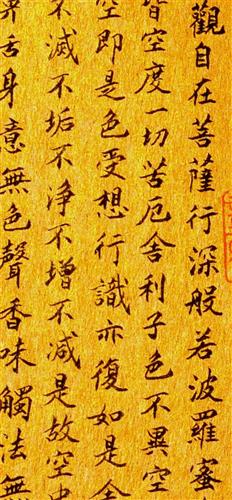 觀自在菩薩行深般若波羅蜜
皆空度一切苦厄舍利子色不異空
空即是色受想行識亦復如是舍
不滅不垢不淨不增不減是故空中
鼻舌身意無色聲香味觸法無